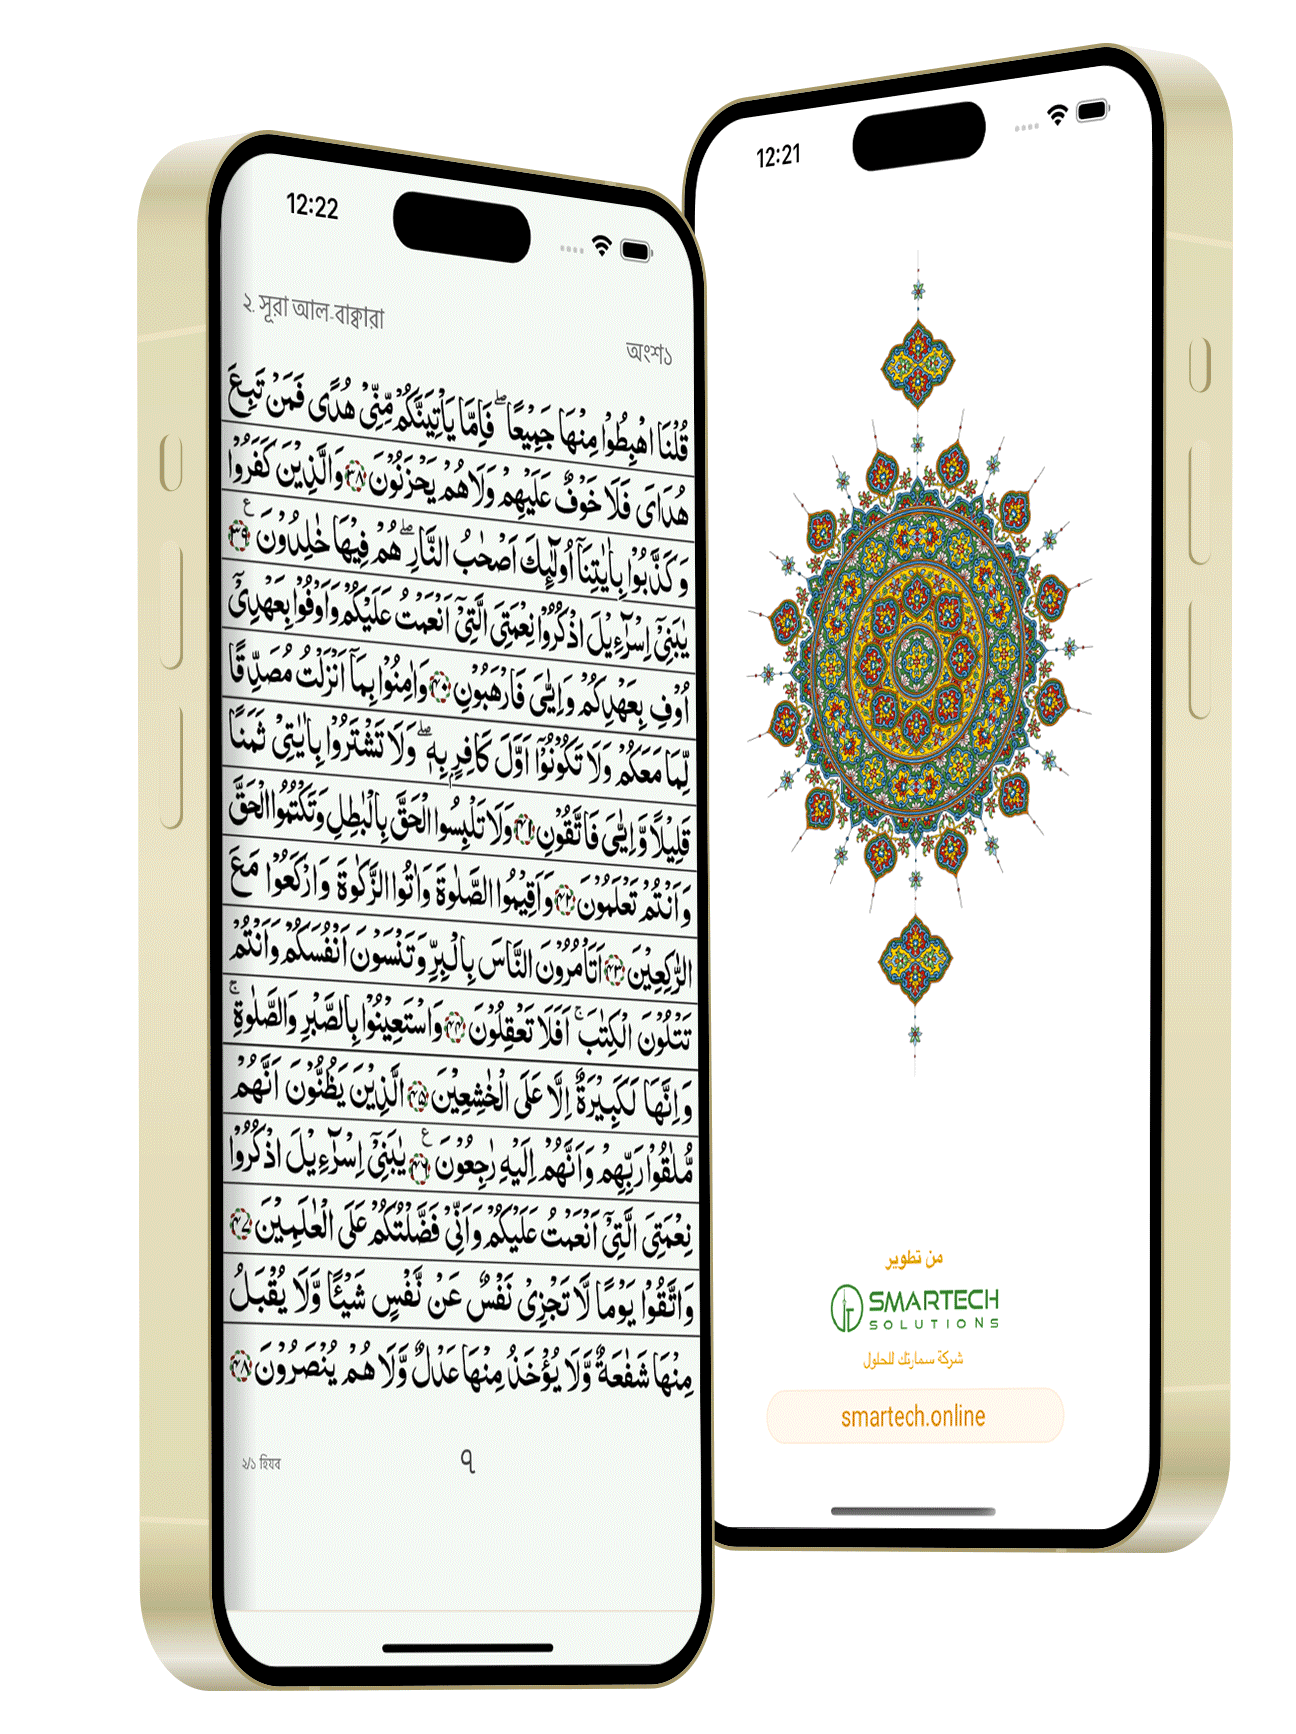 12:22
২. সূরা আল-বাক্বারা
অংশ১
قُلْنَا اهْبِطُوْا مِنْهَا جَمِيْعًا ۖ فَاِمَّا يَاْتِيَنَّكُمْ مِّنِّيْ هُدًى فَمَنْ تَبِعَ
هُدَايَ فَلَا خَوْفٌ عَلَيْهِمْ وَلَا هُمْ يَحْزَنُوْنَ ۳۸ وَالَّذِيْنَ كَفَرُوْا
وَكَذَّبُوْا بِاٰيٰتِنَآ اُولٰٓئِكَ اَصْحٰبُ النَّارِ ۖ هُمْ فِيْهَا خٰلِدُوْنَ ۳۹ ع
يٰبَنِيْٓ اِسْرَآءِيْلَ اذْكُرُوْا نِعْمَتِيَ الَّتِيْٓ اَنْعَمْتُ عَلَيْكُمْ وَاَوْفُوْا بِعَهْدِيْٓ
اُوْفِ بِعَهْدِكُمْ وَاِيَّايَ فَارْهَبُوْنِ ۴۰ وَاٰمِنُوْا بِمَآ اَنْزَلْتُ مُصَدِّقًا
لِّمَا مَعَكُمْ وَلَا تَكُوْنُوْٓا اَوَّلَ كَافِرٍۢ بِهٖ ۖ وَلَا تَشْتَرُوْا بِاٰيٰتِيْ ثَمَنًا
قَلِيْلًا وَّاِيَّايَ فَاتَّقُوْنِ ۴۱ وَلَا تَلْبِسُوا الْحَقَّ بِالْبٰطِلِ وَتَكْتُمُوا الْحَقَّ
وَاَنْتُمْ تَعْلَمُوْنَ ۴۲ وَاَقِيْمُوا الصَّلٰوةَ وَاٰتُوا الزَّكٰوةَ وَارْكَعُوْا مَعَ
الرّٰكِعِيْنَ ۴۳ اَتَاْمُرُوْنَ النَّاسَ بِالْبِرِّ وَتَنْسَوْنَ اَنْفُسَكُمْ وَاَنْتُمْ
تَتْلُوْنَ الْكِتٰبَ ۚ اَفَلَا تَعْقِلُوْنَ ۴۴ وَاسْتَعِيْنُوْا بِالصَّبْرِ وَالصَّلٰوةِ ۚ
وَاِنَّهَا لَكَبِيْرَةٌ اِلَّا عَلَى الْخٰشِعِيْنَ ۴۵ الَّذِيْنَ يَظُنُّوْنَ اَنَّهُمْ
مُّلٰقُوْا رَبِّهِمْ وَاَنَّهُمْ اِلَيْهِ رٰجِعُوْنَ ۴۶ ع يٰبَنِيْٓ اِسْرَآءِيْلَ اذْكُرُوْا
نِعْمَتِيَ الَّتِيْٓ اَنْعَمْتُ عَلَيْكُمْ وَاَنِّيْ فَضَّلْتُكُمْ عَلَى الْعٰلَمِيْنَ ۴۷
وَاتَّقُوْا يَوْمًا لَّا تَجْزِيْ نَفْسٌ عَنْ نَّفْسٍ شَيْـًٔا وَّلَا يُقْبَلُ
مِنْهَا شَفٰعَةٌ وَّلَا يُؤْخَذُ مِنْهَا عَدْلٌ وَّلَا هُمْ يُنْصَرُوْنَ ۴۸
২/১ হিযব
৭
12:21
من تطوير
SMARTECH
SOLUTIONS
شركة سمارتك للحلول
smartech.online